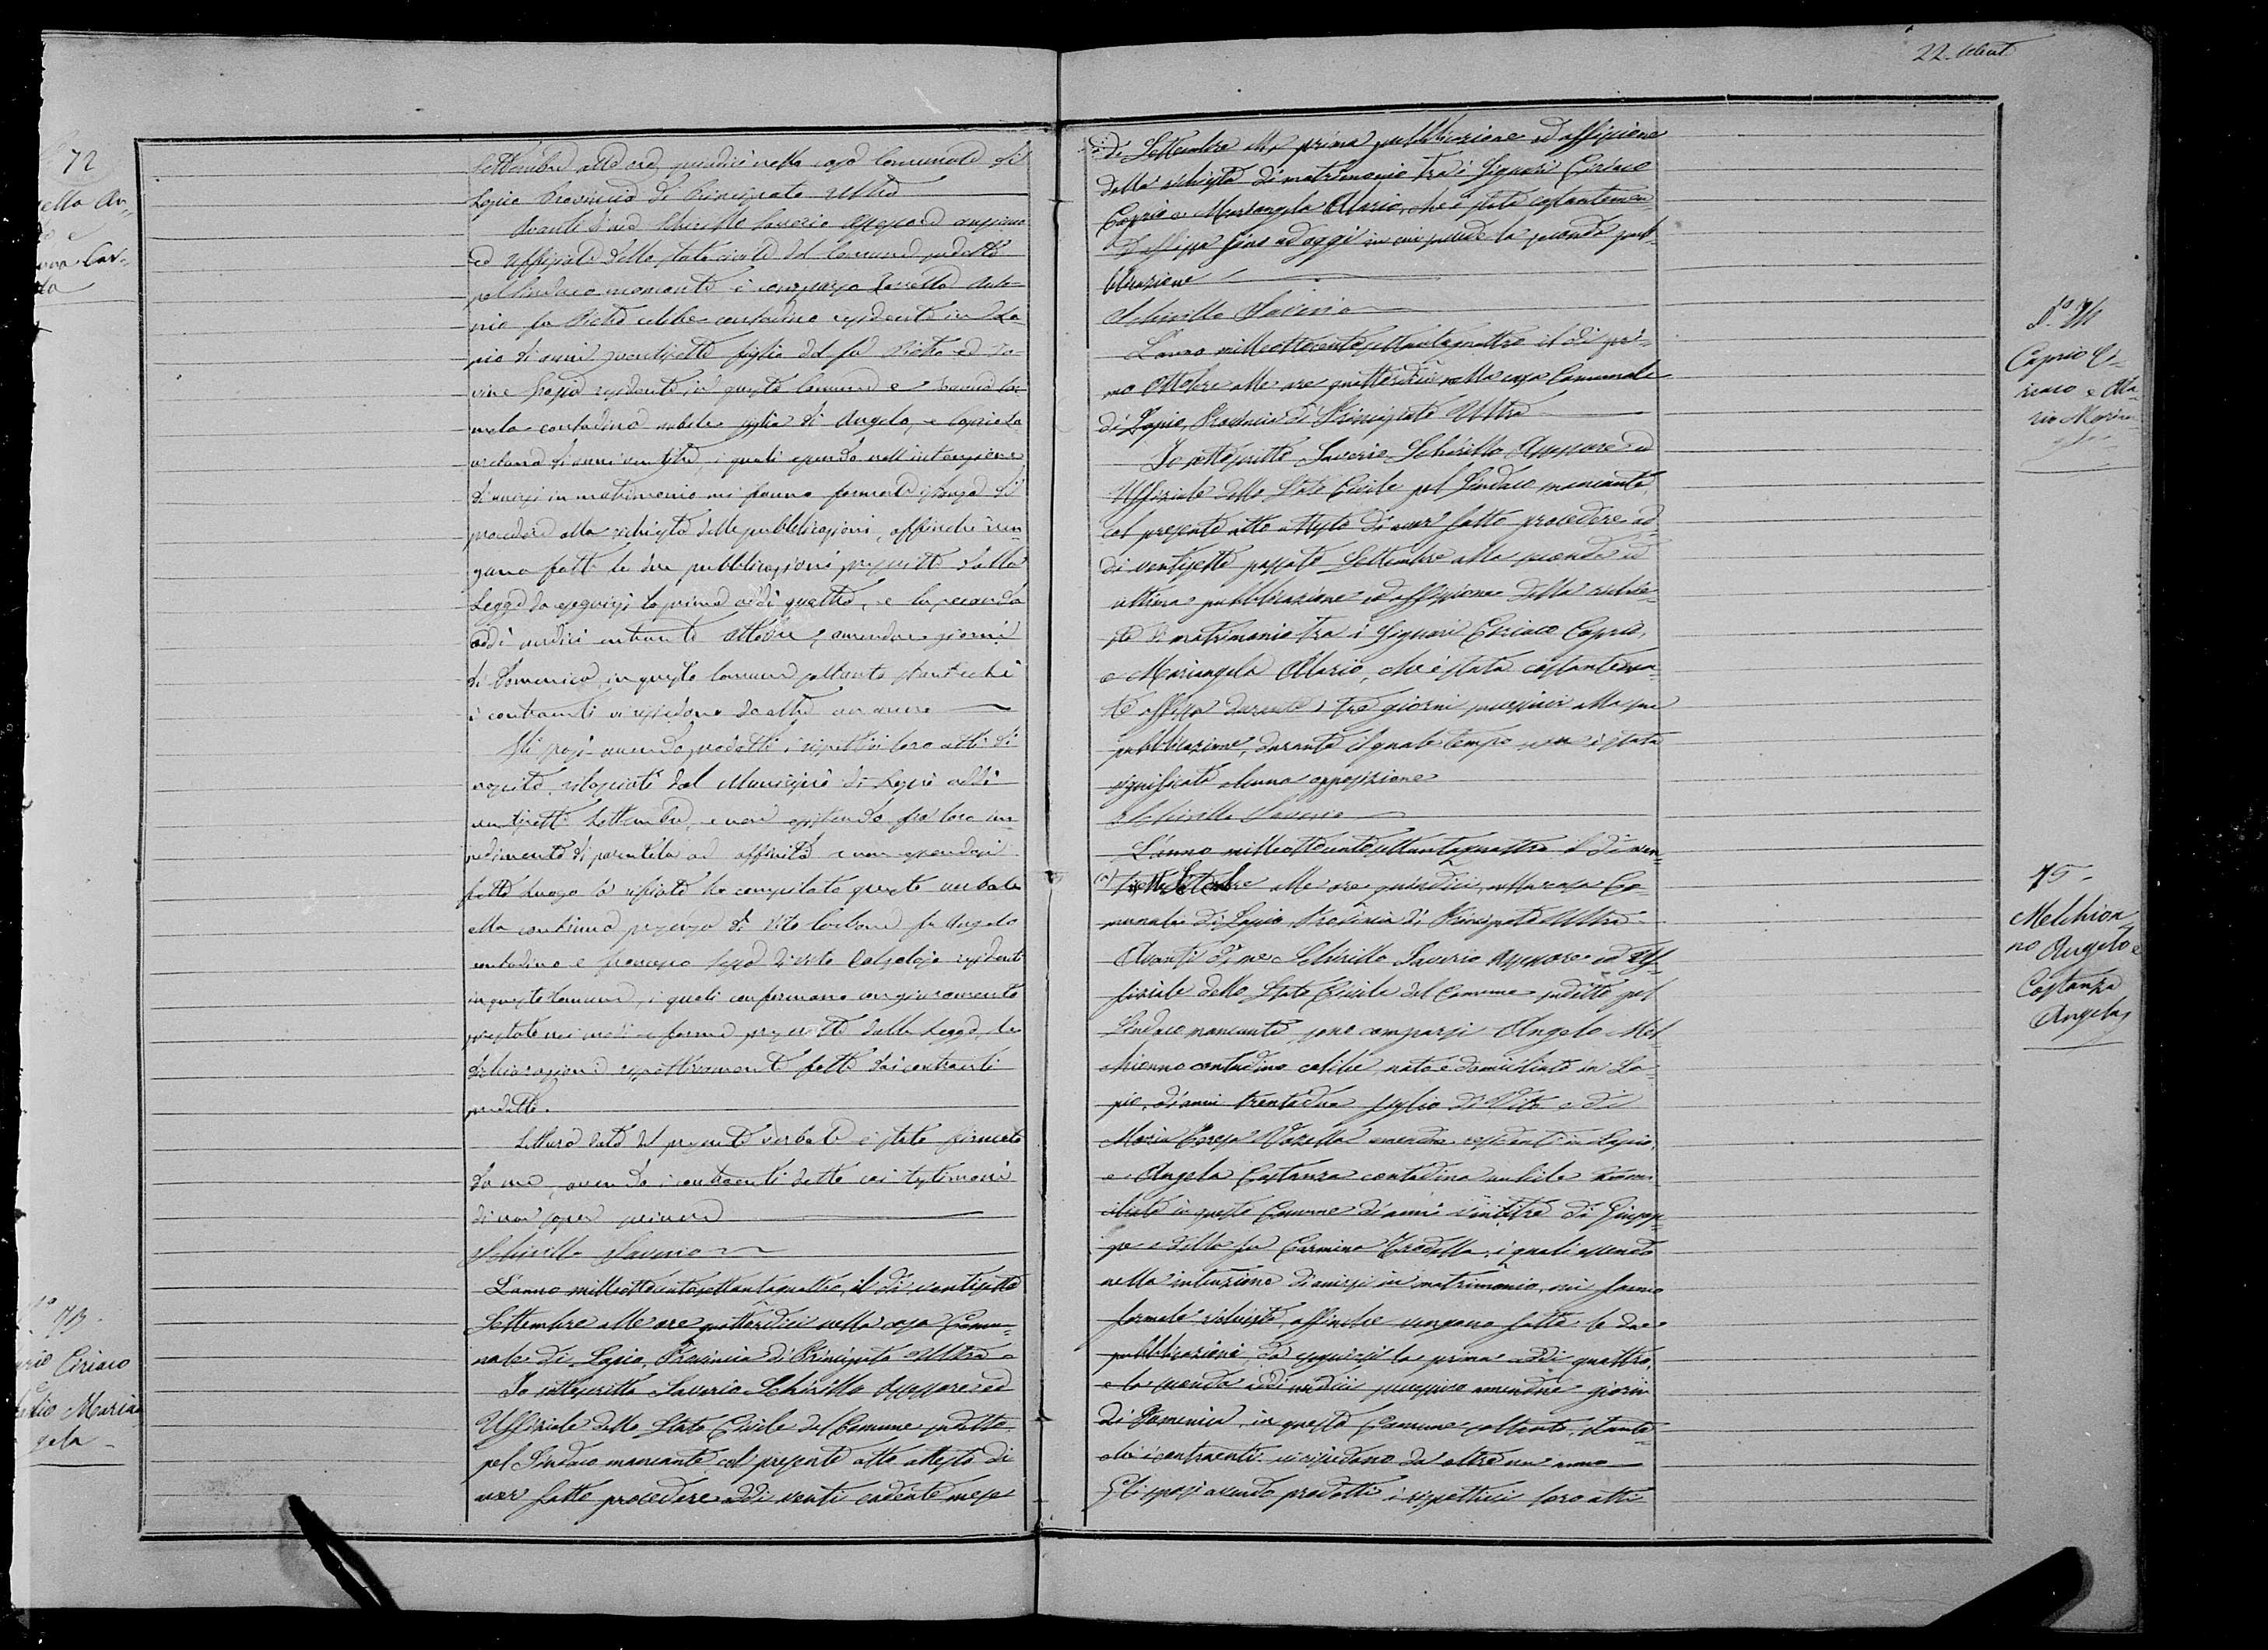 72
Settembre alle ore quindici nella casa Comunale di
Lapio Provincia di Principato Ultra
Avanti di me Schirillo Saverio Assessore anziano
ed Uffiziale dello stato civile del Comune sudetto
pel Sindaco mancante è comparso Vanella Anto-
nio fu Pietro celibe contadino residente in La-
pio di anni ventisette figlio del fu Pietro ed
residente in questo Comune e
mela contadina nubile figlia di Angelo, e Caprio
di anni ventitre, i quali essendo nell'intenzione
di unirsi in matrimonio mi fanno formale istanza di
procedere alla richiesta delle pubblicazioni, affinchè ven-
gano fatte le due pubblicazioni prescritte dalla
Legge da eseguirsi la prima addì quattro, e la seconda
addì undici entrante Ottobre, amendue giorni
di Domenica, in questo Comune soltanto stantechè
i contraenti vi risiedono da oltre un anno
Gli sposi avendo prodotti i rispettivi loro atti di
nascita, rilasciati dal Municipio di Lapio addì
ventisette Settembre, e non esistendo fra loro im-
pedimento di parentela od affinità e non essendosi
fatto luogo a rifiuto ho compilato questo verbale
alla continua presenza di Vito Carbone fu Angelo
contadino e Francesco di Vito Calzolajo residenti
in questo Comune, i quali confermano con giuramento
prestato nei modi e forma prescritte dalla Legge, le
dichiarazioni rispettivamente fatte dai contraenti
predetti.
Lettura data del presente verbale è stato firmato
da me, avendo i contraenti detto coi testimoni
di non sapere scrivere
Schirillo Saverio
N.° 73.
Caprio Ciriaco
e
Olario Marian
gela
L'anno milleottocentosettantaquattro, il dì ventisette
Settembre alle ore quattordici nella casa Comu-
nale di Lapio, Provincia di Principato Ultra
Io sottoscritto Saverio Schirillo Assessore ed
Uffiziale dello Stato Civile del Comune sudetto
pel Sindaco mancante col presente atto attesto di
aver fatto procedere addì venti cadente mese
22
di Settembre alla prima pubblicazione ed affissione
della richiesta di matrimonio tra i Signori Ciriaco
Caprio e Mariangela Olario, che è stata costantemen-
te affissa fino ad oggi in cui succede la seconda pub-
blicazione
Schirillo Saverio
N.° 74
Caprio Ci-
riaco e Ola-
rio Marian-
gela
L'anno milleottocentosettantaquattro il dì pri-
mo Ottobre alle ore quattordici nella casa Comunale
di Lapio, Provincia di Principato Ultra
Io sottoscritto Saverio Schirillo Assessore ed
Uffiziale dello Stato Civile pel Sindaco mancante,
col presente atto attesto di aver fatto procedere ad-
dì ventisette passato Settembre alla seconda ed
ultima pubblicazione ed affissione della richie-
sta di matrimonio tra i Signori Ciriaco Caprio,
e Mariangela Olario, che è stata costantemen-
te affissa durante i tre giorni successivi alla sua
pubblicazione, durante il quale tempo non è stata
significata alcuna opposizione
Schirillo Saverio
75.
Melchion
no Angelo e
Costanza
Angela
L'anno milleottocentosettantaquattro il dì ven-
alle ore quindici, nella casa Co-
munale di Lapio Provincia di Principato Ultra
Avanti di me Schirillo Saverio Assessore ed Uf-
fiziale dello Stato Civile del Comune sudetto pel
Sindaco mancante sono comparsi Angelo Mel-
chionno contadino celibe, nato e domiciliato in La-
pio, di anni trentadue figlio di Vito e di
Maria Teresa Vanella amendue residenti in Lapio,
e Angela Costanza contadina nubile domi-
ciliata in questo Comune di anni ventitre di Giusep-
pe e della fu Carmina i quali essendo
nella intenzione di unirsi in matrimonio, mi fanno
formale richiesta, affinchè vengano fatte le due
pubblicazioni, da eseguirsi la prima addì quattro,
e la seconda addì undici prossimo amendue giorni
di Domenica, in questo Comune soltanto, stante-
chè i contraenti vi risiedono da oltre un anno
Gli sposi avendo prodotti i rispettivi loro atti